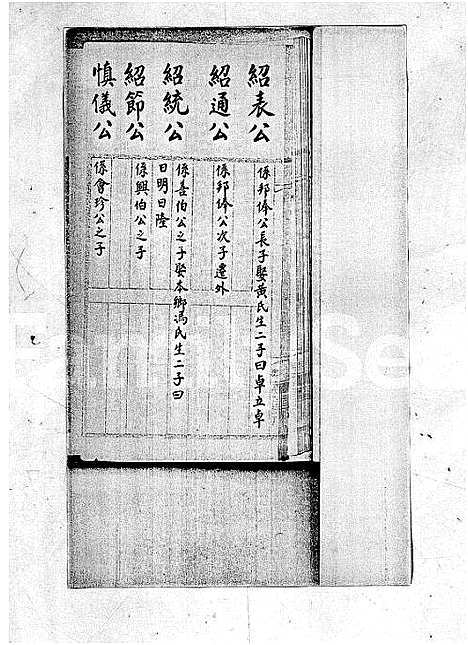 紹表公
係邦伶公長子娶黃氏生二子曰卓立卓
紹通公
係邦伶公次子遷外
紹統公
係喜伯公之子娶本鄉馮氏生二子曰
日明日隆
紹節公
係興伯公之子
慎儀公
係會珍公之子